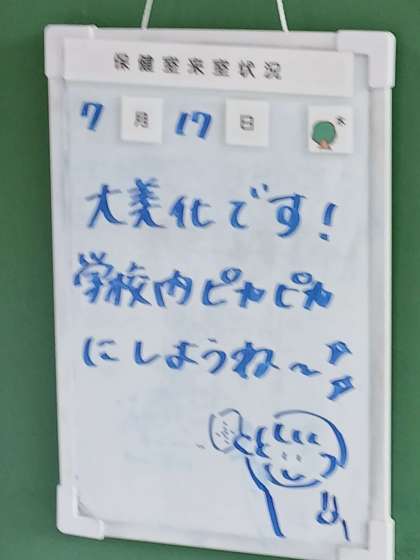 保健室来室状況
7月17日 木
大美化です!
学校内ピカピカ
にしようね〜